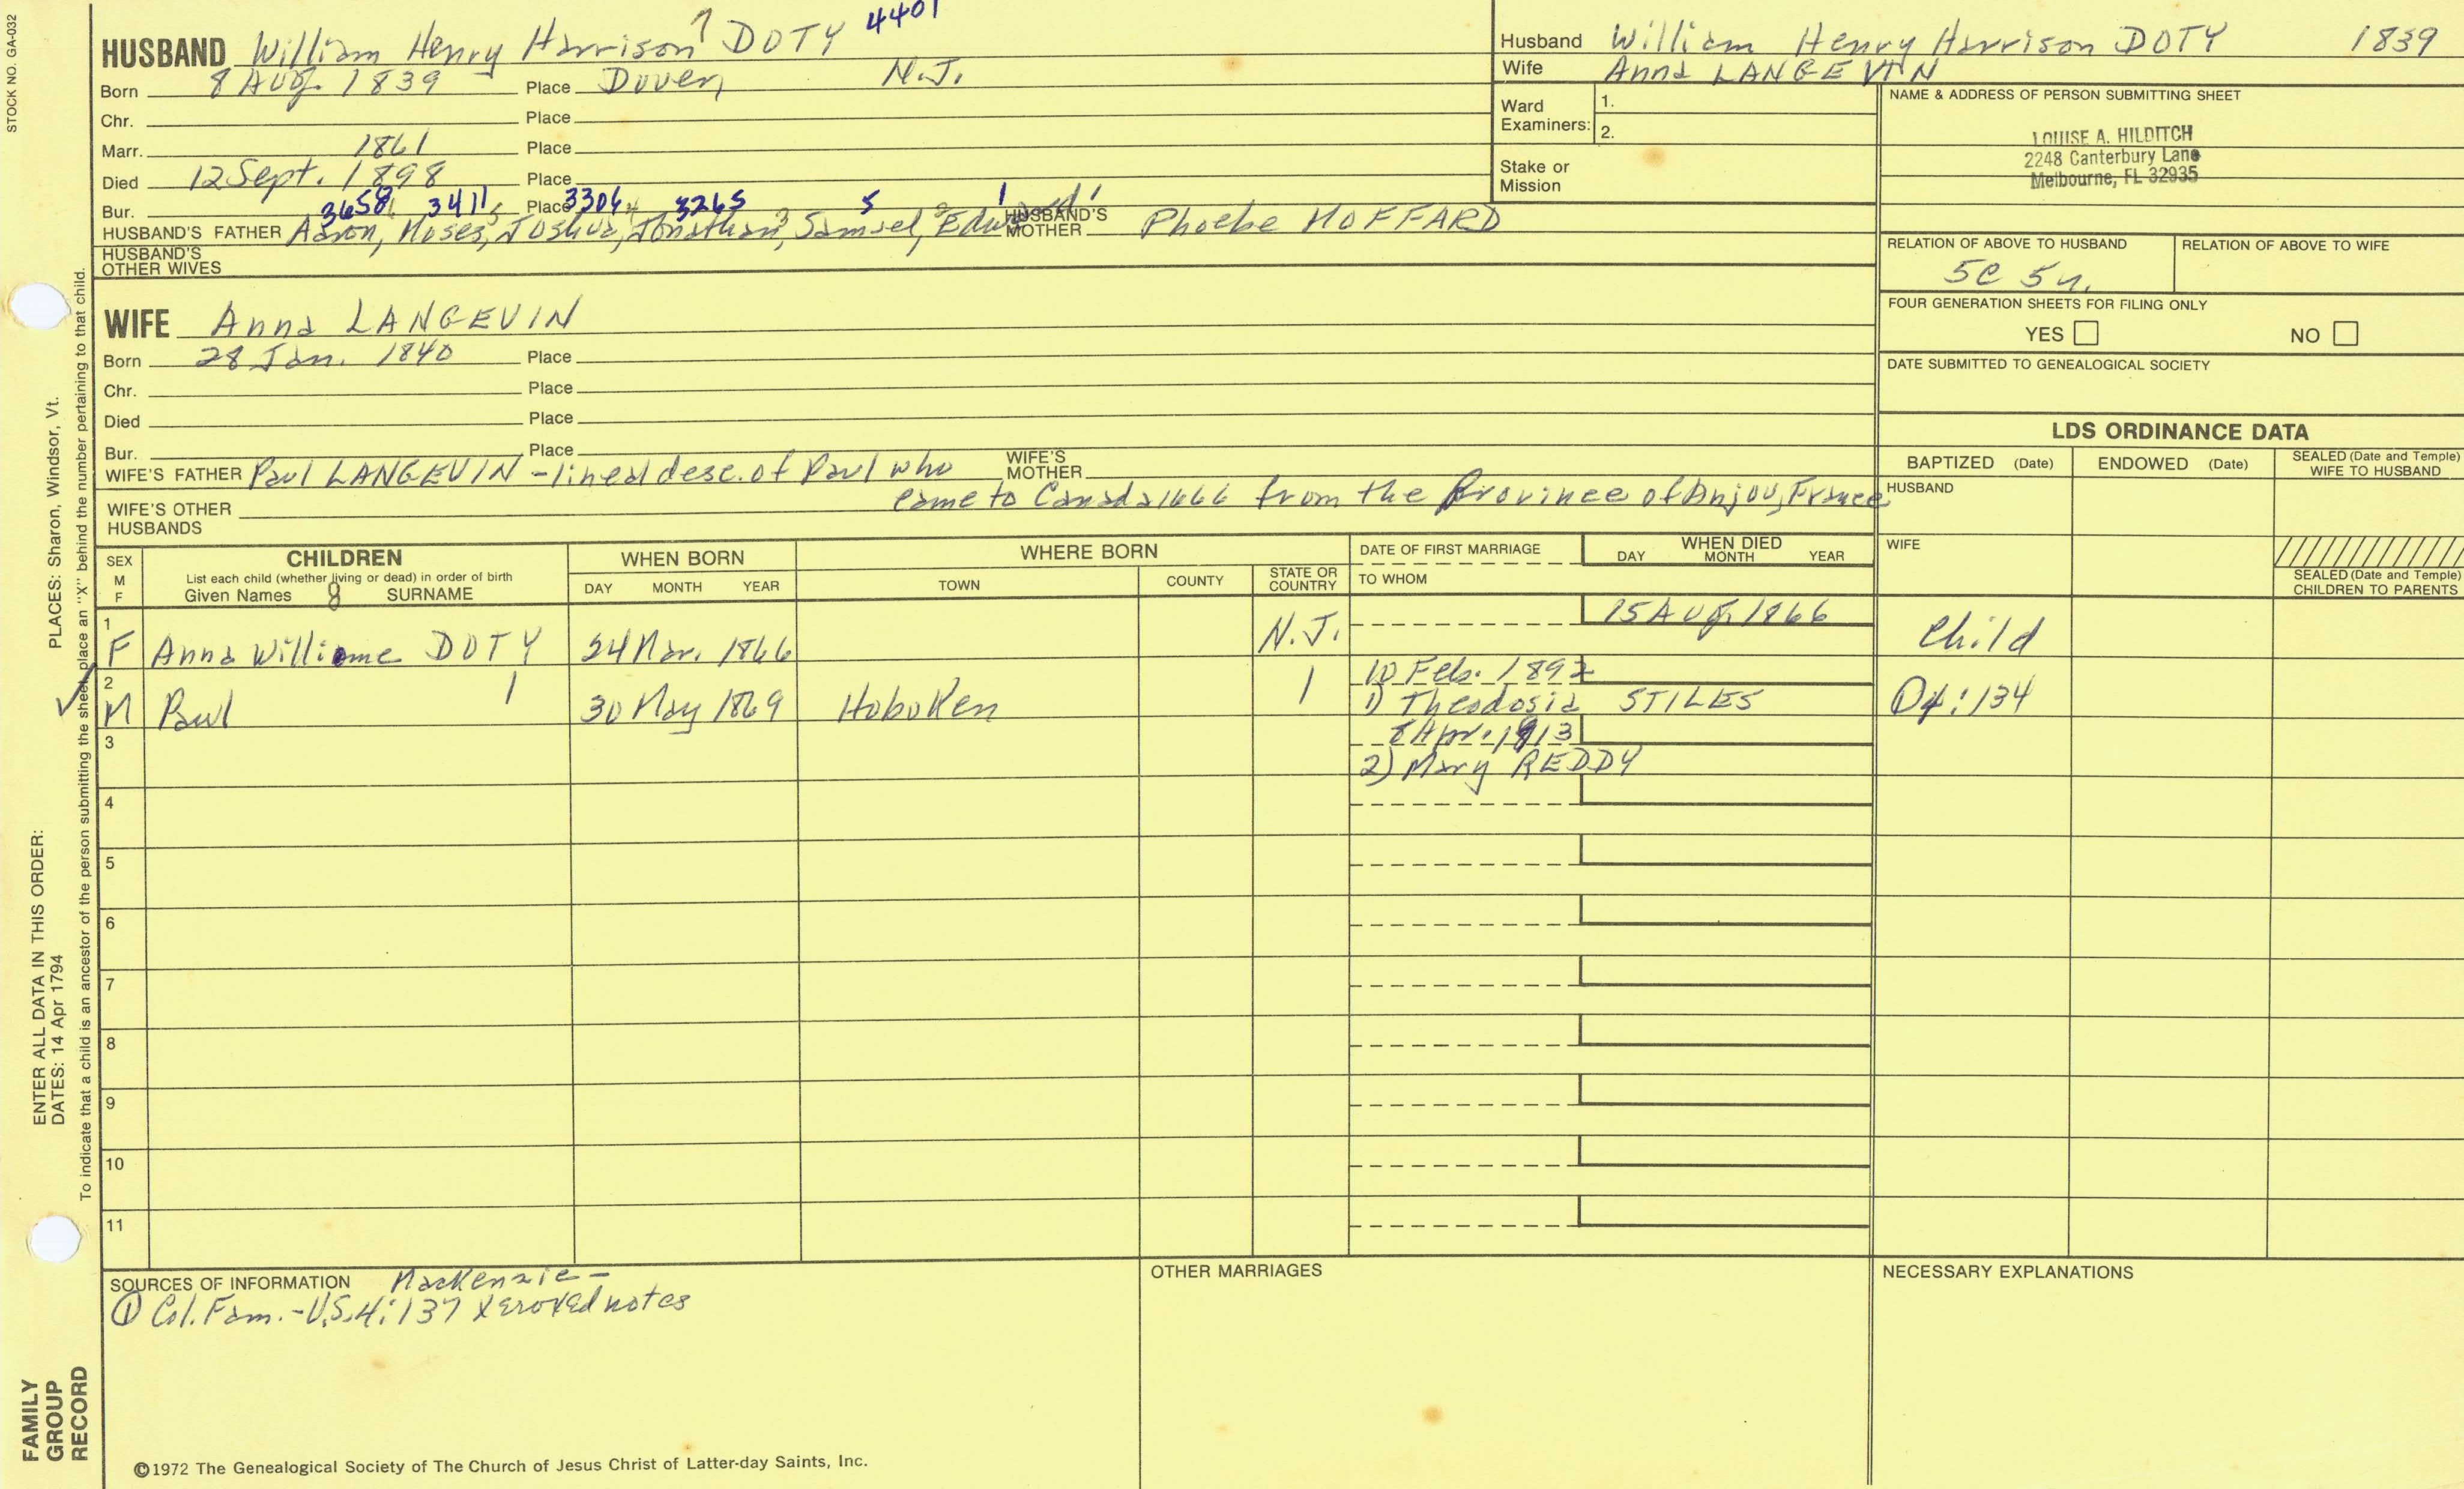 STOCK NO. GA-032
HUSBAND William Henry Harrison 7 DOTY 4401
Born 8 Aug. 1839 Place Dover, N.J.
Chr. Place
Marr. 1861 Place
Died 12 Sept. 1898 Place
Bur. Place
3658 3411 3304 3265 5 1
HUSBAND'S FATHER Aaron, Moses, Joshua, Jonathan, Samuel, Edward HUSBAND'S MOTHER Phoebe HOFFARD
HUSBAND'S OTHER WIVES
WIFE Anna LANGEVIN
Born 28 Jan. 1840 Place
Chr. Place
Died Place
Bur. Place
WIFE'S FATHER Paul LANGEVIN - lineal desc. of Paul who WIFE'S MOTHER
came to Canada 1666 from the Province of Anjou, France
WIFE'S OTHER HUSBANDS
Husband William Henry Harrison DOTY 1839
Wife Anna LANGEVIN
Ward Examiners: 1.
2.
Stake or Mission
NAME & ADDRESS OF PERSON SUBMITTING SHEET
LOUISE A. HILDITCH
2248 Canterbury Lane
Melbourne, FL 32935
RELATION OF ABOVE TO HUSBAND RELATION OF ABOVE TO WIFE
5C 5r.
FOUR GENERATION SHEETS FOR FILING ONLY
YES NO
DATE SUBMITTED TO GENEALOGICAL SOCIETY
LDS ORDINANCE DATA
BAPTIZED (Date) ENDOWED (Date) SEALED (Date and Temple) WIFE TO HUSBAND
HUSBAND
WIFE
SEALED (Date and Temple) CHILDREN TO PARENTS
SEX M F
CHILDREN
List each child (whether living or dead) in order of birth
Given Names 8 SURNAME
WHEN BORN
DAY MONTH YEAR
WHERE BORN
TOWN COUNTY STATE OR COUNTRY
DATE OF FIRST MARRIAGE
TO WHOM
WHEN DIED
DAY MONTH YEAR
1 F Anna Williame DOTY 24 Mar. 1866 N.J. 15 Aug. 1866 Child
2 M Paul 30 May 1869 Hoboken 10 Feb. 1892
1) Theodosia STILES
3 8 Apr. 1913
2) Mary REDDY
4
5
6
7
8
9
10
11
SOURCES OF INFORMATION Mackenzie -
① Col. Fam. - U.S. 4:137 xeroxed notes
OTHER MARRIAGES
NECESSARY EXPLANATIONS
©1972 The Genealogical Society of The Church of Jesus Christ of Latter-day Saints, Inc.
FAMILY GROUP RECORD
ENTER ALL DATA IN THIS ORDER:
DATES: 14 Apr 1794
PLACES: Sharon, Windsor, Vt.
To indicate that a child is an ancestor of the person submitting the sheet, place an "X" behind the number pertaining to that child.